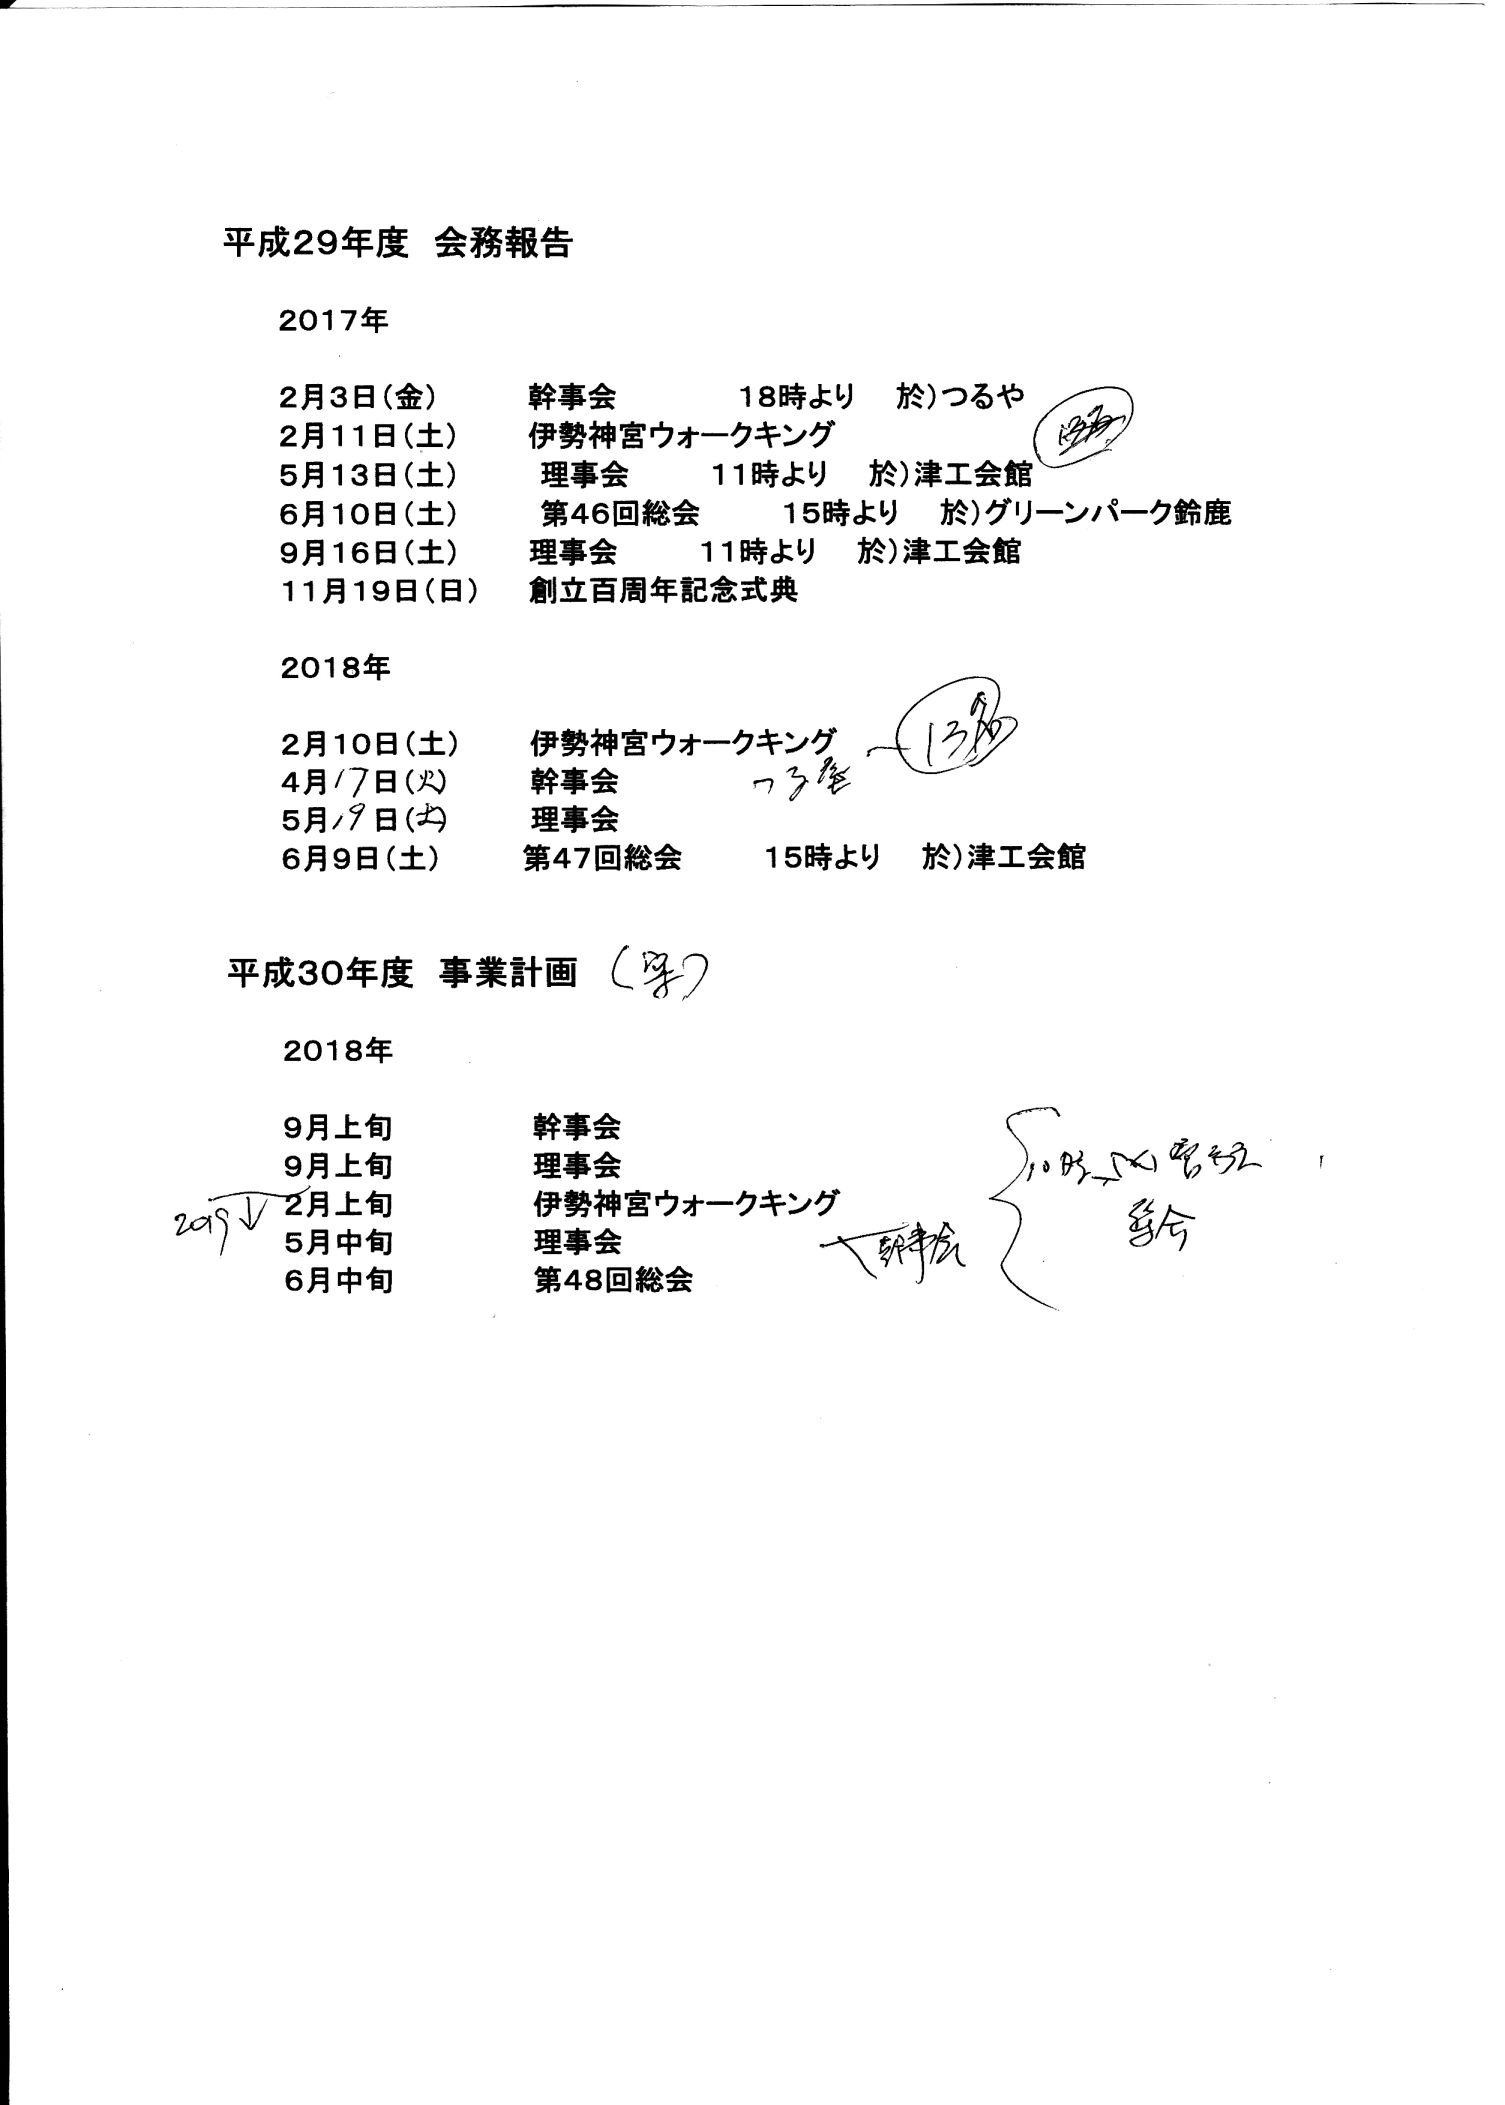 平成29年度 会務報告
2017年
2月3日(金) 幹事会 18時より 於)つるや
2月11日(土) 伊勢神宮ウォークキング
5月13日(土) 理事会 11時より 於)津工会館
6月10日(土) 第46回総会 15時より 於)グリーンパーク鈴鹿
9月16日(土) 理事会 11時より 於)津工会館
11月19日(日) 創立百周年記念式典
2018年
2月10日(土) 伊勢神宮ウォークキング 13名
4月17日(火) 幹事会 つる屋
5月19日(土) 理事会
6月9日(土) 第47回総会 15時より 於)津工会館
平成30年度 事業計画 (案)
2018年
9月上旬 幹事会
9月上旬 理事会
2019 2月上旬 伊勢神宮ウォークキング
5月中旬 理事会 幹事会
6月中旬 第48回総会